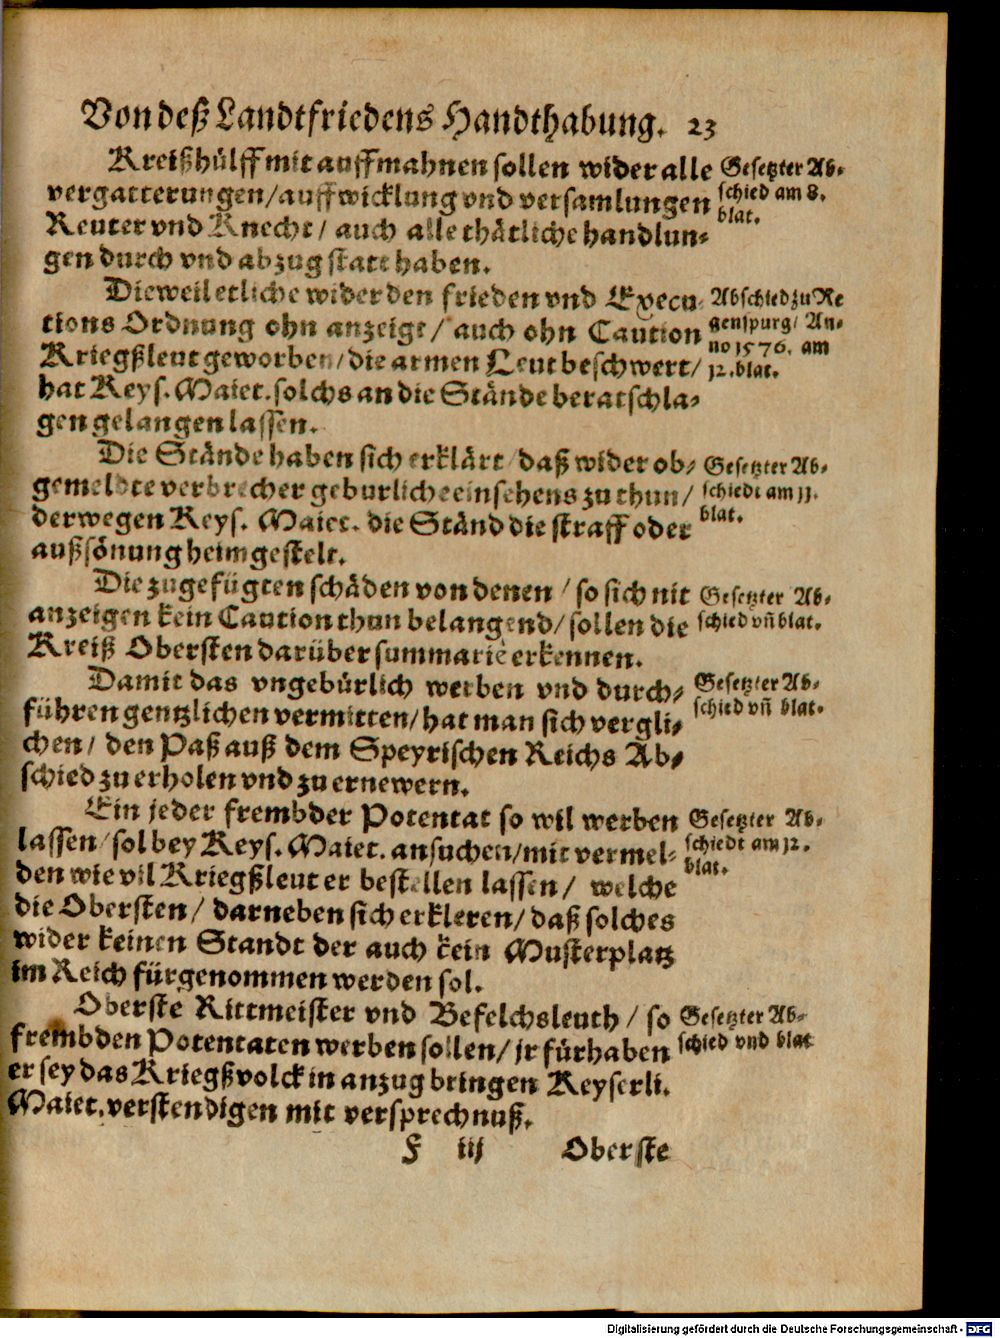 Von deß Landtfriedens Handthabung. 23
Kreißhülff mit auffmahnen sollen wider alle
vergatterungen/auffwicklung vnd versamlungen
Reuter vnd Knecht/ auch alle thätliche handlun-
gen durch vnd abzug statt haben.
Gesetzter Ab-
schied am 8.
blat.
Dieweil etliche wider den frieden vnd Execu-
tions Ordnung ohn anzeige/ auch ohn Caution
Kriegßleut geworben/die armen Leut beschwert/
hat Keys. Maiet. solchs an die Stände beratschla-
gen gelangen lassen.
Abschied zu Re
genspurg/ An-
no 1576. am
12. blat.
Die Stände haben sich erklärt/daß wider ob-
gemeldte verbrecher geburliche einsehens zu thun/
derwegen Keys. Maiet. die Ständ die straff oder
außsönung heimgestelt.
Gesetzter Ab-
schiedt am 11.
blat.
Die zugefügten schäden von denen / so sich nit
anzeigen kein Caution thun belangend/sollen die
Kreiß Obersten darüber summariè erkennen.
Gesetzter Ab-
schied vñ blat.
Damit das vngebürlich werben vnd durch-
führen gentzlichen vermitten/hat man sich vergli-
chen/ den Paß auß dem Speyrischen Reichs Ab-
schied zu erholen vnd zu ernewern.
Gesetzter Ab-
schied vñ blat.
Ein jeder frembder Potentat so wil werben
lassen/sol bey Keys. Maiet. ansuchen/mit vermel-
den wie vil Kriegßleut er bestellen lassen/ welche
die Obersten/ darneben sich erkleren/daß solches
wider keinen Standt der auch kein Musterplatz
im Reich fürgenommen werden sol.
Gesetzter Ab-
schiedt am 12.
blat.
Oberste Rittmeister vnd Befelchsleuth / so
frembden Potentaten werben sollen/ jr fürhaben
er sey das Kriegßvolck in anzug bringen Keyserli.
Maiet. verstendigen mit versprechnuß.
Gesetzter Ab-
schied vnd blat
F iij Oberste
Digitalisierung gefördert durch die Deutsche Forschungsgemeinschaft - DFG